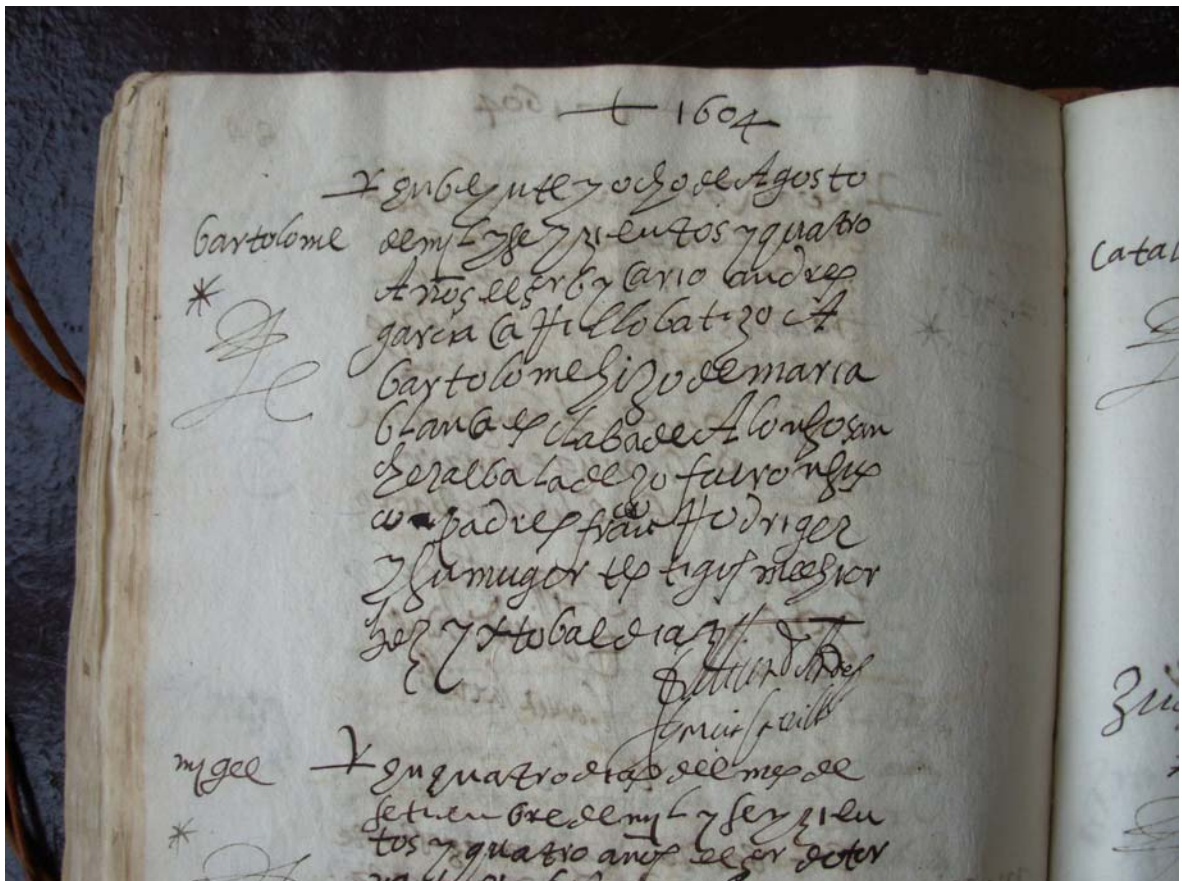 + 1604
en beynte y ocho de Agosto
bartolome
de myl y seyzientos y quatro
Años el sr bycario andres
garcia Carrillo batizo A
bartolome hizo de maria
blanb esclaba de Alonso san
chez albaladezo fueron sus
conpadres franco Rodrigez
y su muger testigos melchior
y xptobal diaz
migel
en quatro dias del mes de
setienbre de myl y seyzien
tos y quatro años el sr dotor
Catal